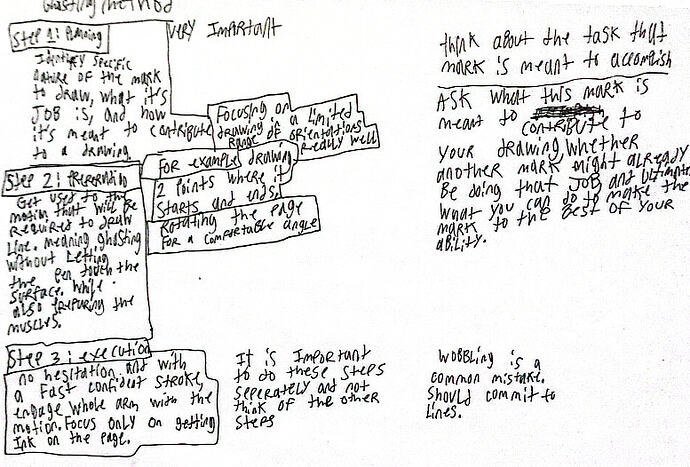 Ghosting method
Step 1: Planning
VERY IMPORTANT
Identify specific
nature of the mark
to draw, what it's
JOB is, and how
it's meant to contribute
to a drawing
Focusing on
drawing in a limited
range of orientations
really well
Step 2: Preperation
Get used to the
motion that will be
required to draw
line. meaning ghosting
without letting
the pen touch the
surface. while
also preparing the
muscles.
For example drawing
2 points where it
starts and ends,
rotating the page
for a comfortable angle
Step 3: execution
no hesitation and with
a fast confident stroke,
engage whole arm with the
motion. Focus only on getting
Ink on the page.
It is important
to do these steps
seperately and not
think of the other
steps
think about the task that
mark is meant to accomplish
ASK what this mark is
meant to contribute to
your drawing, whether
another mark might already
Be doing that JOB and
what you can do to make the
mark to the best of your
ability.
Wobbling is a
common mistake.
Should commit to
lines.